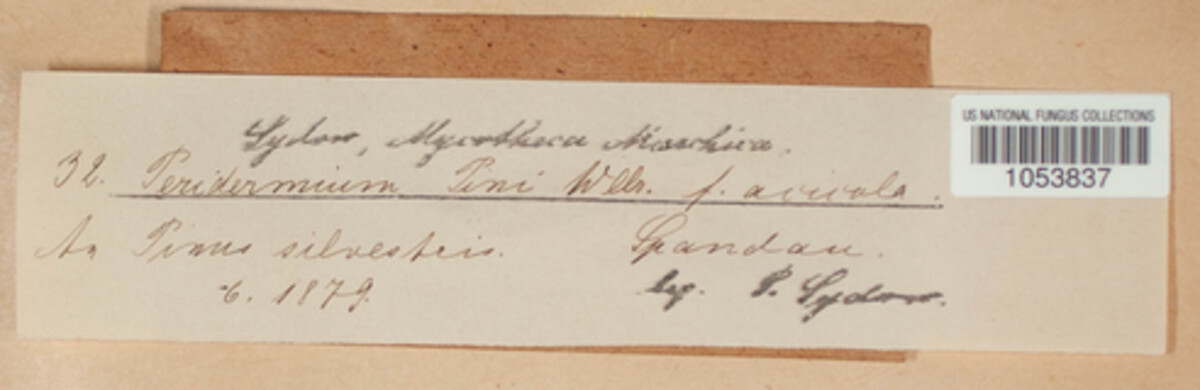 Sydow, Mycotheca Marchica.
32. Peridermium Pini Wllr. f. acicola.
An Pinus silvestris. Spandau.
6. 1879. leg. P. Sydow.
US NATIONAL FUNGUS COLLECTIONS
1053837